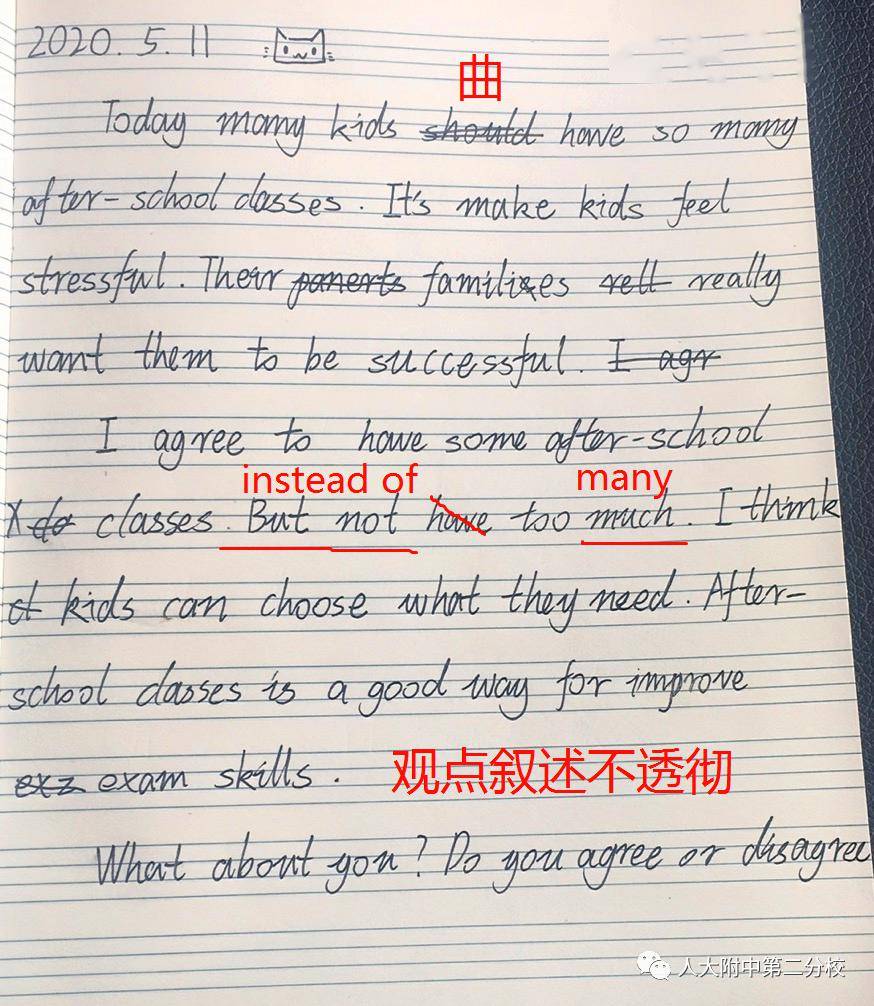 2020.5.11
曲
Today many kids should have so many
after-school classes. It's make kids feel
stressful. Their parents families rell really
want them to be successful. I agr
I agree to have some after-school
instead of many
do classes. But not have too much. I think
kids can choose what they need. After-
school classes is a good way for improve
exz exam skills.
观点叙述不透彻
What about you? Do you agree or disagree
人大附中第二分校